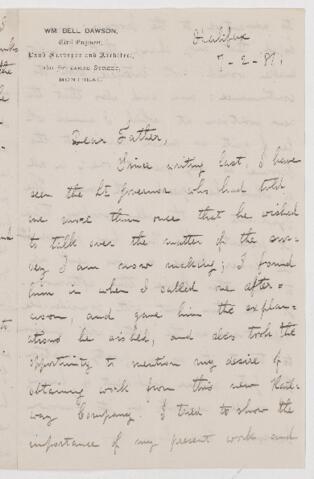 WM BELL DAWSON,
Civil Engineer,
Land Surveyor and Architect,
STREET,
MONTREAL
Halifax
7-2-87
Dear Father,
Since writing last, I have
seen the Lt Governor who had told
me more than once that he wished
to talk over the matter of the sur=
vey I am now making; I found
him in when I called one after=
noon, and gave him the explan=
ations he wished, and also took the
opportunity to mention my desire of
obtaining work from this new Rail=
way Company. I tried to show the
importance of my present work, and